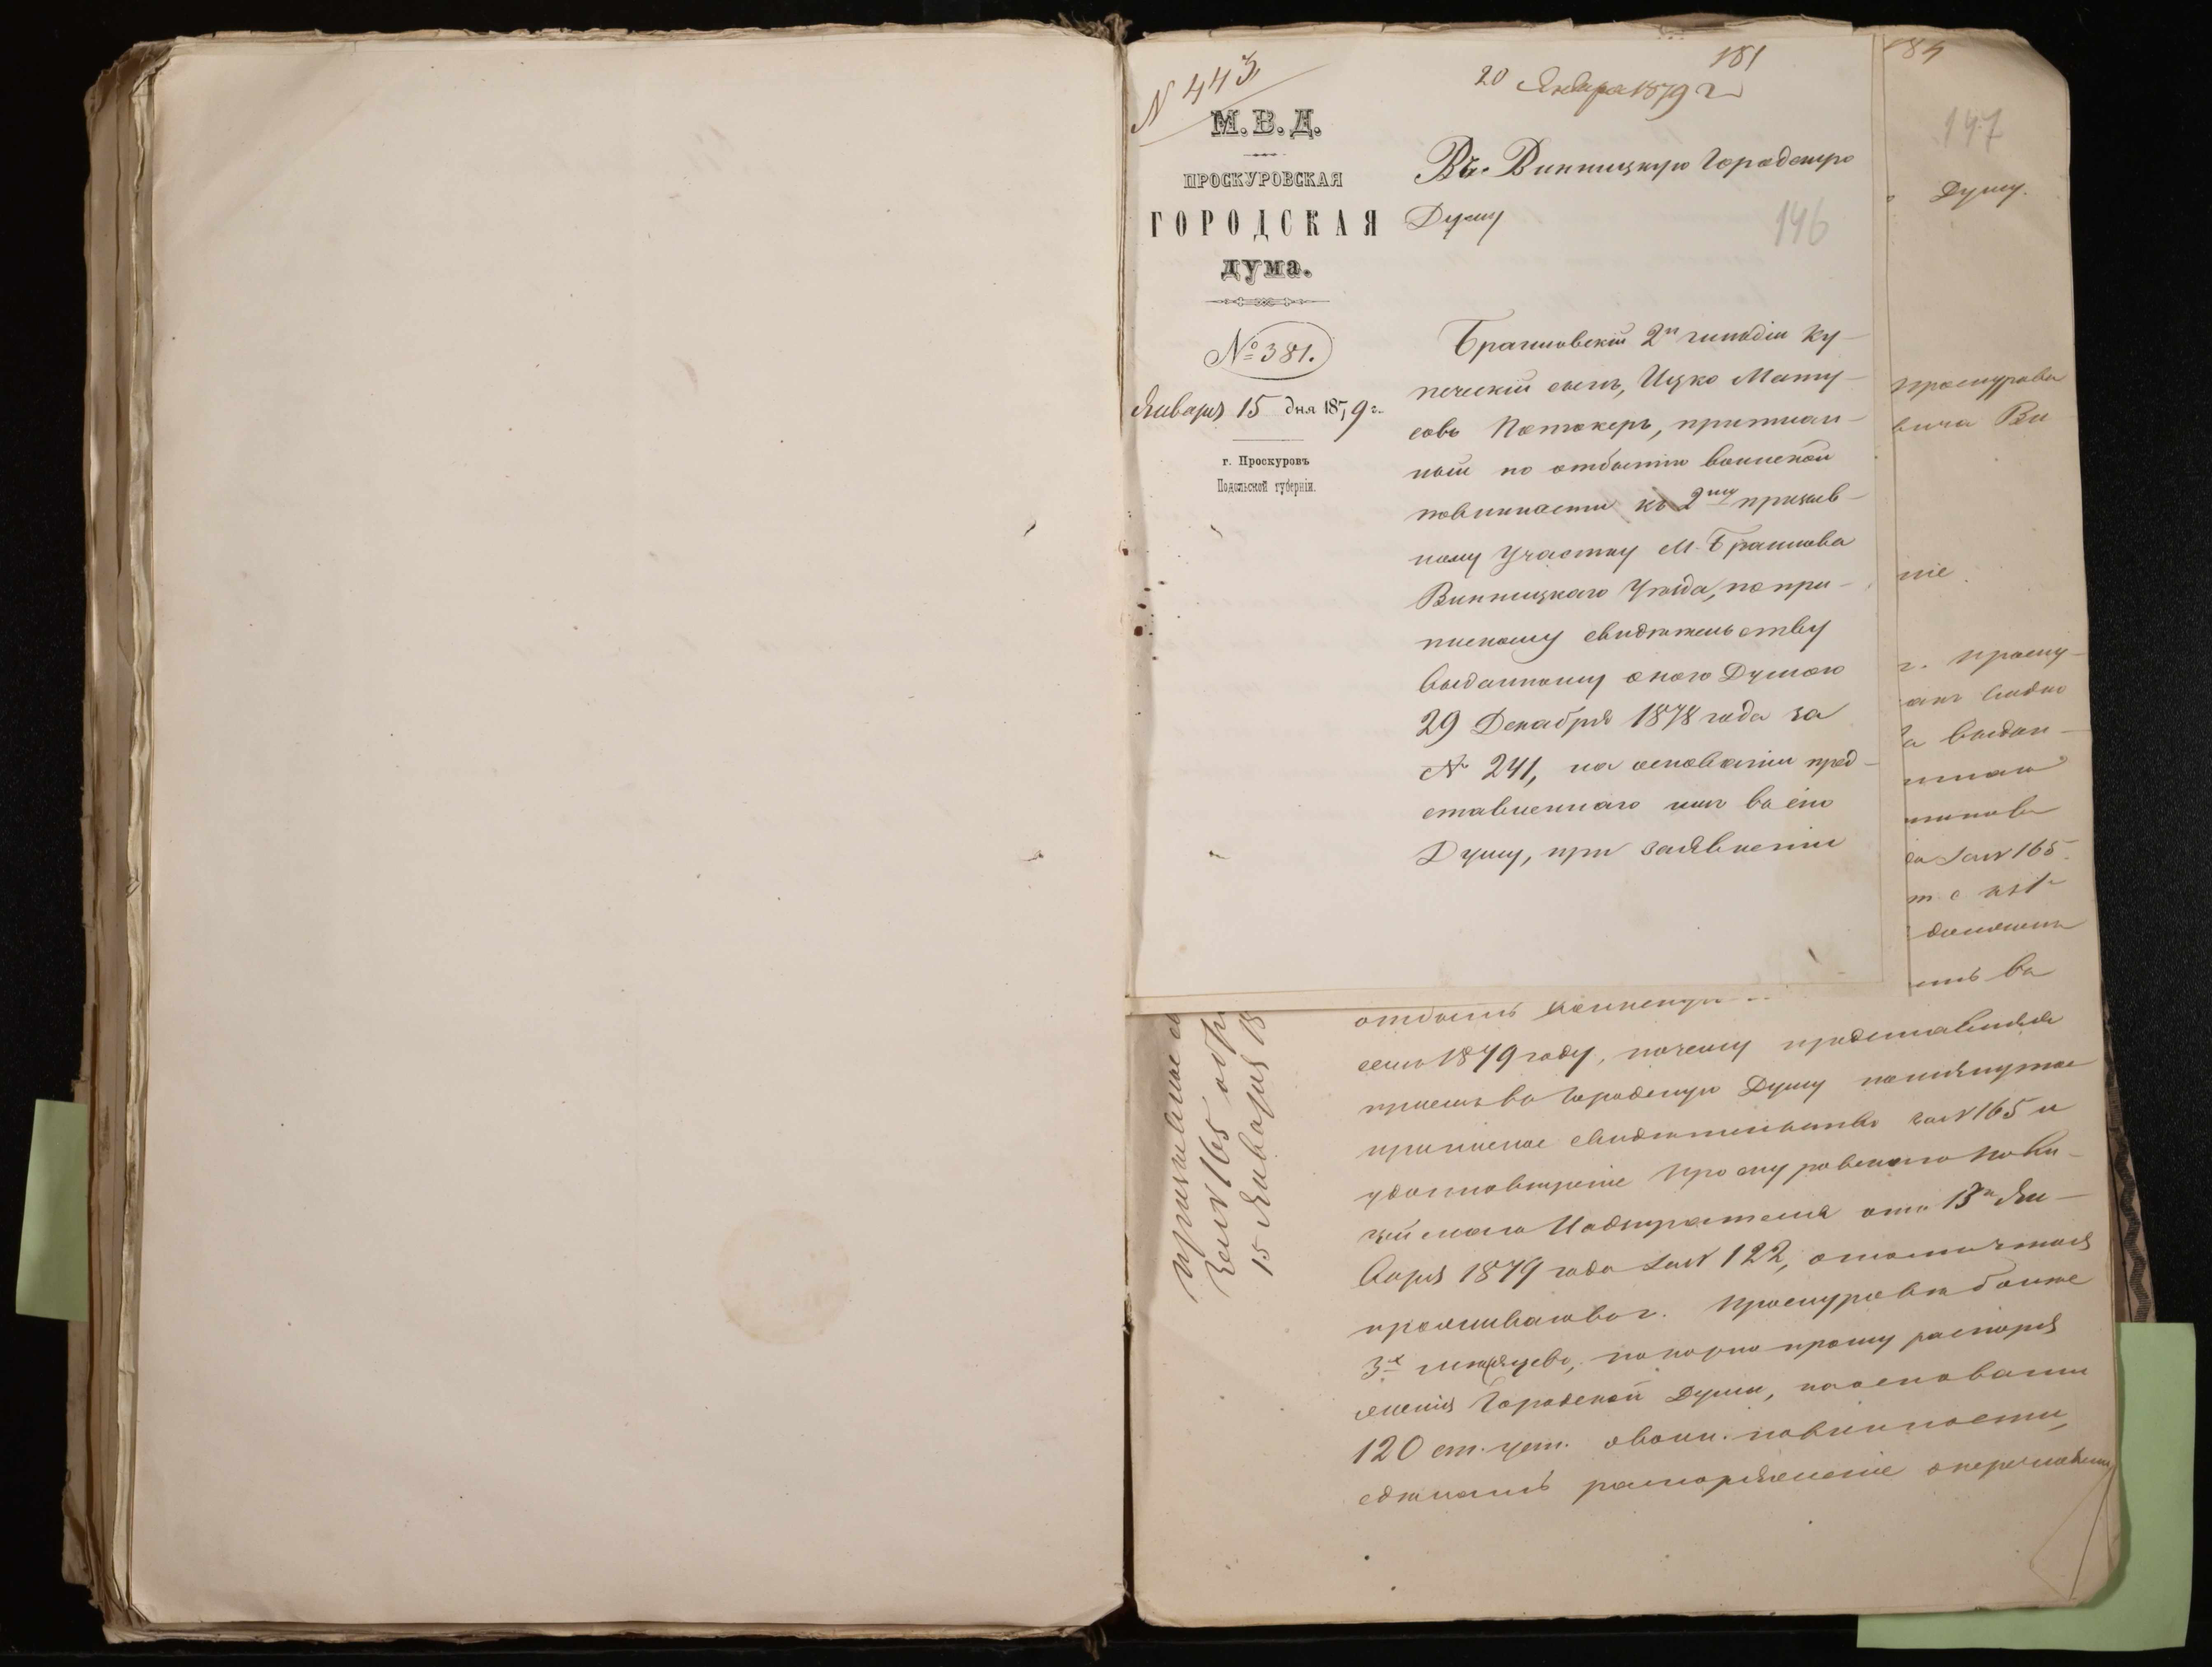 N 443
181
20 Января 1879 г
М. В. Д.
ПРОСКУРОВСКАЯ
ГОРОДСКАЯ
дума.
№ 381.
Января 15 дня 1879 г.
г. Проскуровъ
Подольской губерніи.
Въ Винницкую Городскую
Думу
146
Браиловскій 2й гильдіи ку-
печескій сынъ, Ицко Мату-
совъ Потокеръ, приписан-
ный по отбытію воинской
повинности къ 2му призыв-
ному участку М. Браилова
Винницкаго Уѣзда, по при-
писному свидѣтельству
выданному оною Думою
29 Декабря 1878 года за
№ 241, на основаніи пред-
ставленнаго имъ въ сію
Думу, при заявленіи
184
147
Думу.
Проскурова
вича Ви
ніе
г. Проску-
выдан-
за N 165
отбыть воинскую
семъ 1879 году, почему представляя
при семъ въ Городскую Думу помянутое
приписное свидѣтельство за N 165 и
удостовѣреніе Проскуровскаго Поли-
цейскаго Надзирателя отъ 13го Ян-
варя 1879 года за N 122, о томъ что я
проживаю въ г. Проскуровѣ болѣе
3х мѣсяцевъ, покорно прошу распоря
женія Городской Думы, на основаніи
120 ст. уст. о воин. повинности,
сдѣлать распоряженіе о перечисленіи
приписное св
за N 165 обр
15 Января 18